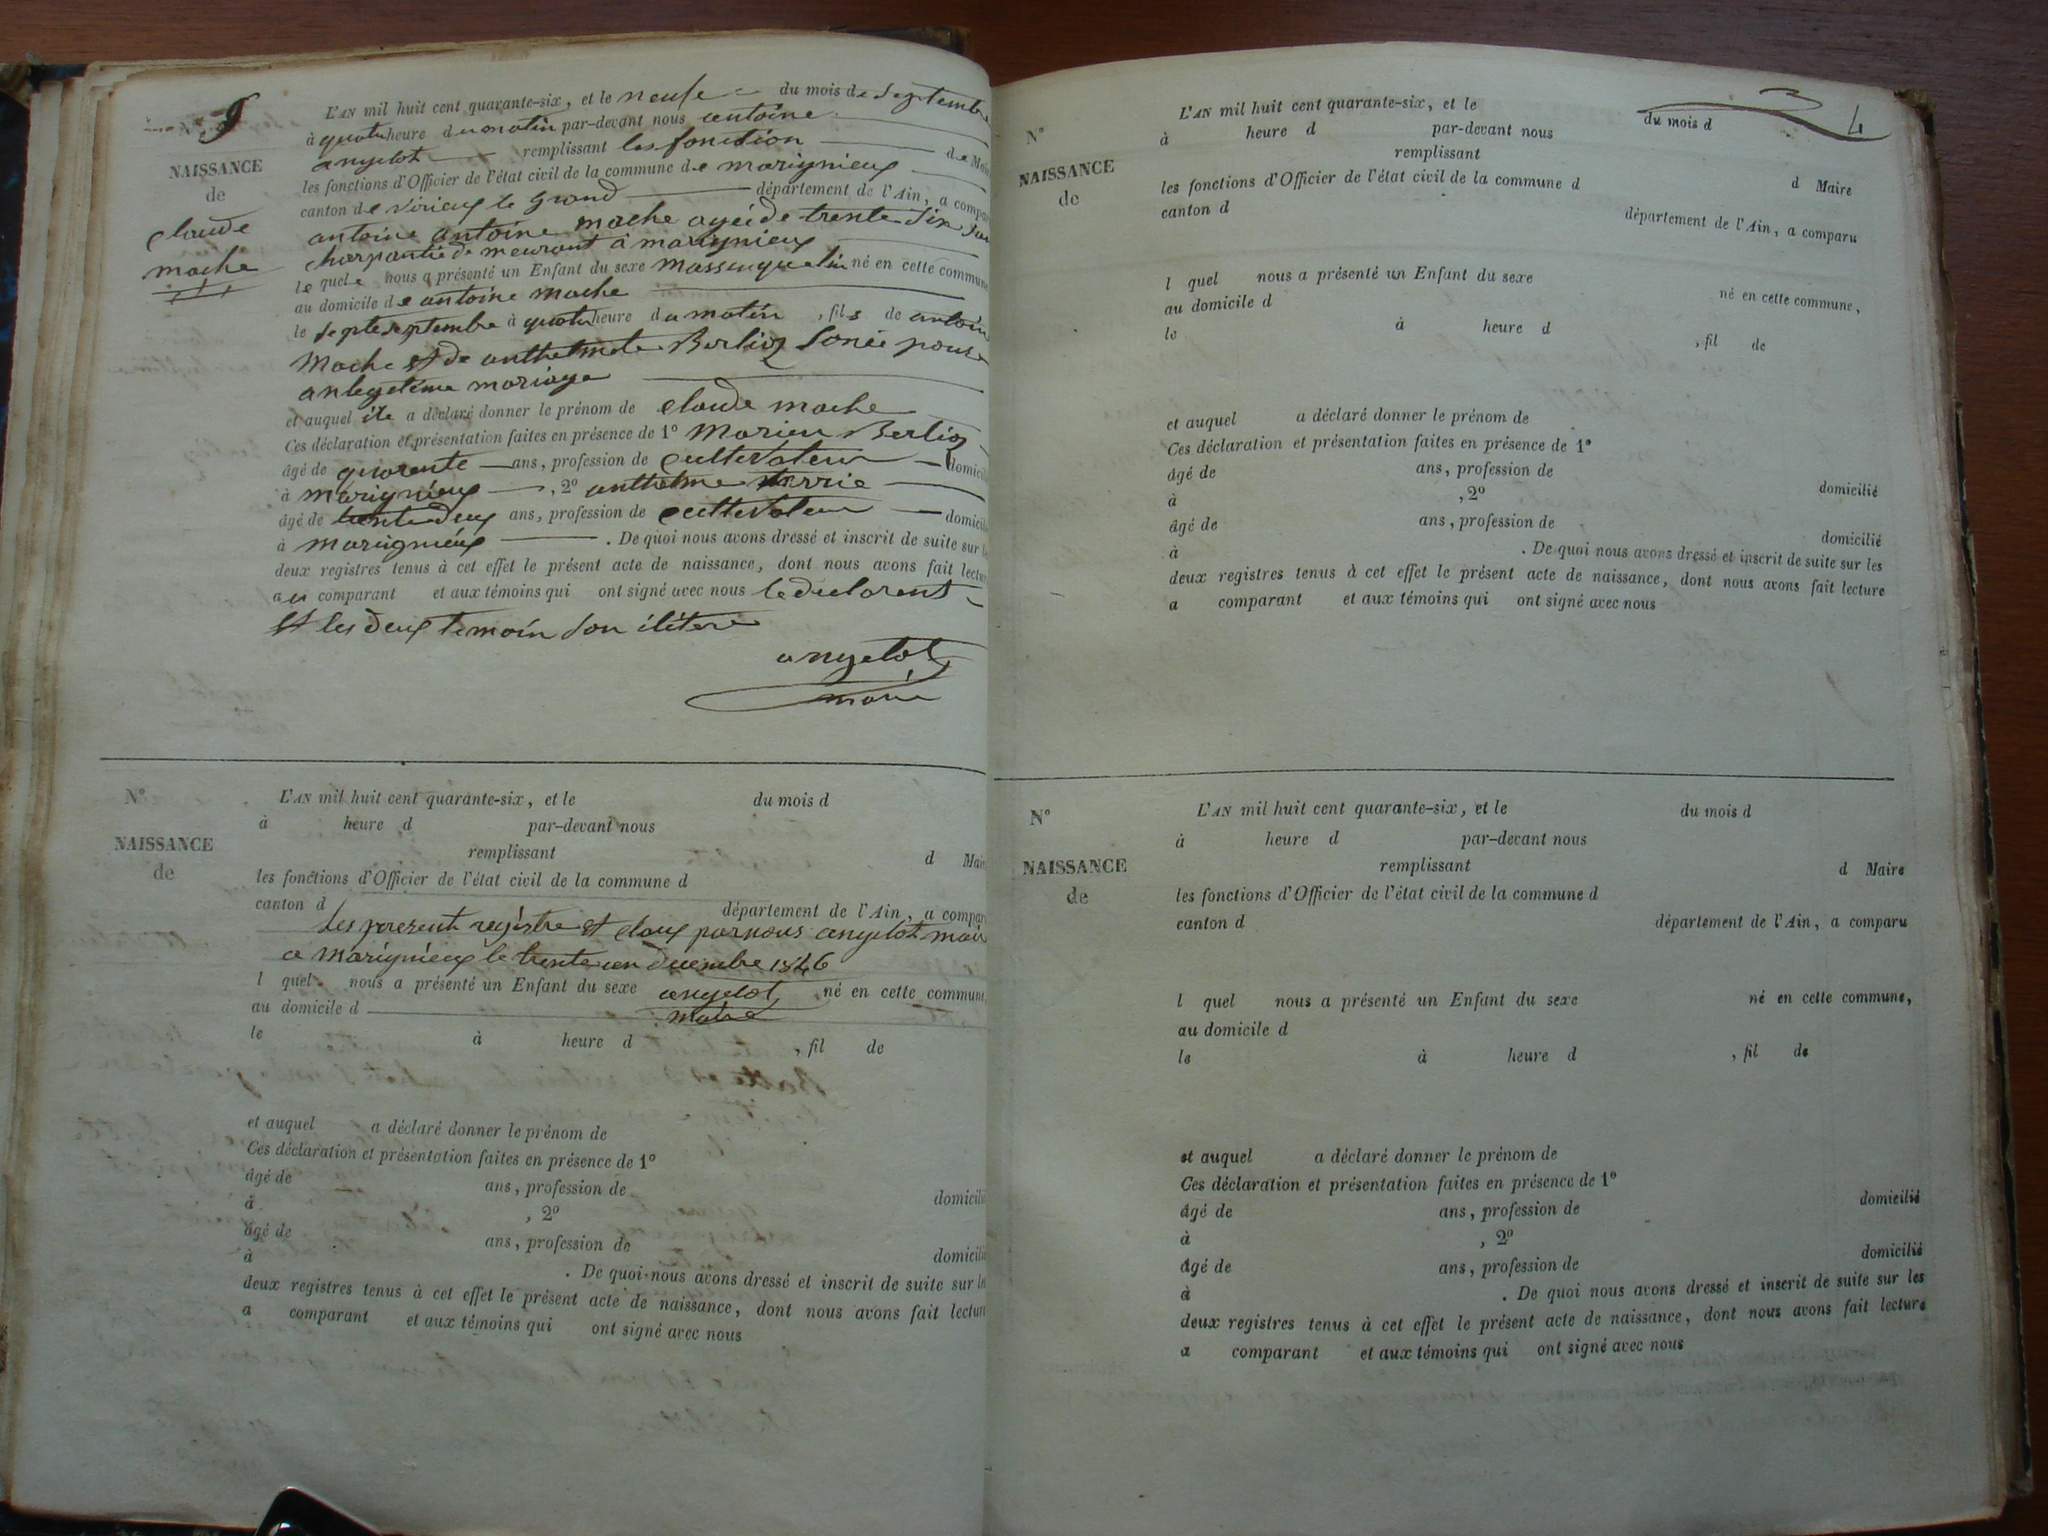 N° 9
NAISSANCE
de
claude
mache
L'AN mil huit cent quarante-six, et le neufe du mois de septembre
à quatre heure du matin par-devant nous antoine
angelot remplissant les fonction de Maire
les fonctions d'Officier de l'état civil de la commune de marignieux
canton de virieux le grand département de l'Ain, a compar
antoine antoine mache agéé de trente six
charpantié demeurant à marignieux
le quele nous a présenté un Enfant du sexe né en cette commune
au domicile de antoine mache
le septe septembre à quatre heure du matin , fils de antoine
Mache et de anthelmete Berlioz
an legetime mariage
et auquel ile a déclaré donner le prénom de claude mache
Ces déclaration et présentation faites en présence de 1° Marieu Berlioz
âgé de quarente ans, profession de cultevateur domicil
à marignieux , 2° anthelme
âgé de trente deux ans, profession de cultevateur domicil
à marignieux . De quoi nous avons dressé et inscrit de suite sur l
deux registres tenus à cet effet le présent acte de naissance, dont nous avons fait lectu
au comparant et aux témoins qui ont signé avec nous le declarent
et les deux temoin son ilitere
angelot
maire
N°
NAISSANCE
de
L'AN mil huit cent quarante-six, et le du mois d
à heure d par-devant nous
remplissant d Mair
les fonctions d'Officier de l'état civil de la commune d
canton d département de l'Ain, a compar
les present registre et cloux par nous angelot maire
a marignieux le trente un decembre 1846
l quel nous a présenté un Enfant du sexe né en cette commune
angelot
maire
au domicile d
le à heure d , fil de
et auquel a déclaré donner le prénom de
Ces déclaration et présentation faites en présence de 1°
âgé de ans, profession de domicili
à , 2°
âgé de ans, profession de domicili
à . De quoi nous avons dressé et inscrit de suite sur le
deux registres tenus à cet effet le présent acte de naissance, dont nous avons fait lecture
a comparant et aux témoins qui ont signé avec nous
4
N°
NAISSANCE
de
L'AN mil huit cent quarante-six, et le du mois d
à heure d par-devant nous
remplissant d Maire
les fonctions d'Officier de l'état civil de la commune d
canton d département de l'Ain, a comparu
l quel nous a présenté un Enfant du sexe né en cette commune,
au domicile d
le à heure d , fil de
et auquel a déclaré donner le prénom de
Ces déclaration et présentation faites en présence de 1°
âgé de ans, profession de domicilié
à , 2°
âgé de ans, profession de domicilié
à . De quoi nous avons dressé et inscrit de suite sur les
deux registres tenus à cet effet le présent acte de naissance, dont nous avons fait lecture
a comparant et aux témoins qui ont signé avec nous
N°
NAISSANCE
de
L'AN mil huit cent quarante-six, et le du mois d
à heure d par-devant nous
remplissant d Maire
les fonctions d'Officier de l'état civil de la commune d
canton d département de l'Ain, a comparu
l quel nous a présenté un Enfant du sexe né en cette commune,
au domicile d
le à heure d , fil de
et auquel a déclaré donner le prénom de
Ces déclaration et présentation faites en présence de 1°
âgé de ans, profession de domicilié
à , 2°
âgé de ans, profession de domicilié
à . De quoi nous avons dressé et inscrit de suite sur les
deux registres tenus à cet effet le présent acte de naissance, dont nous avons fait lecture
a comparant et aux témoins qui ont signé avec nous